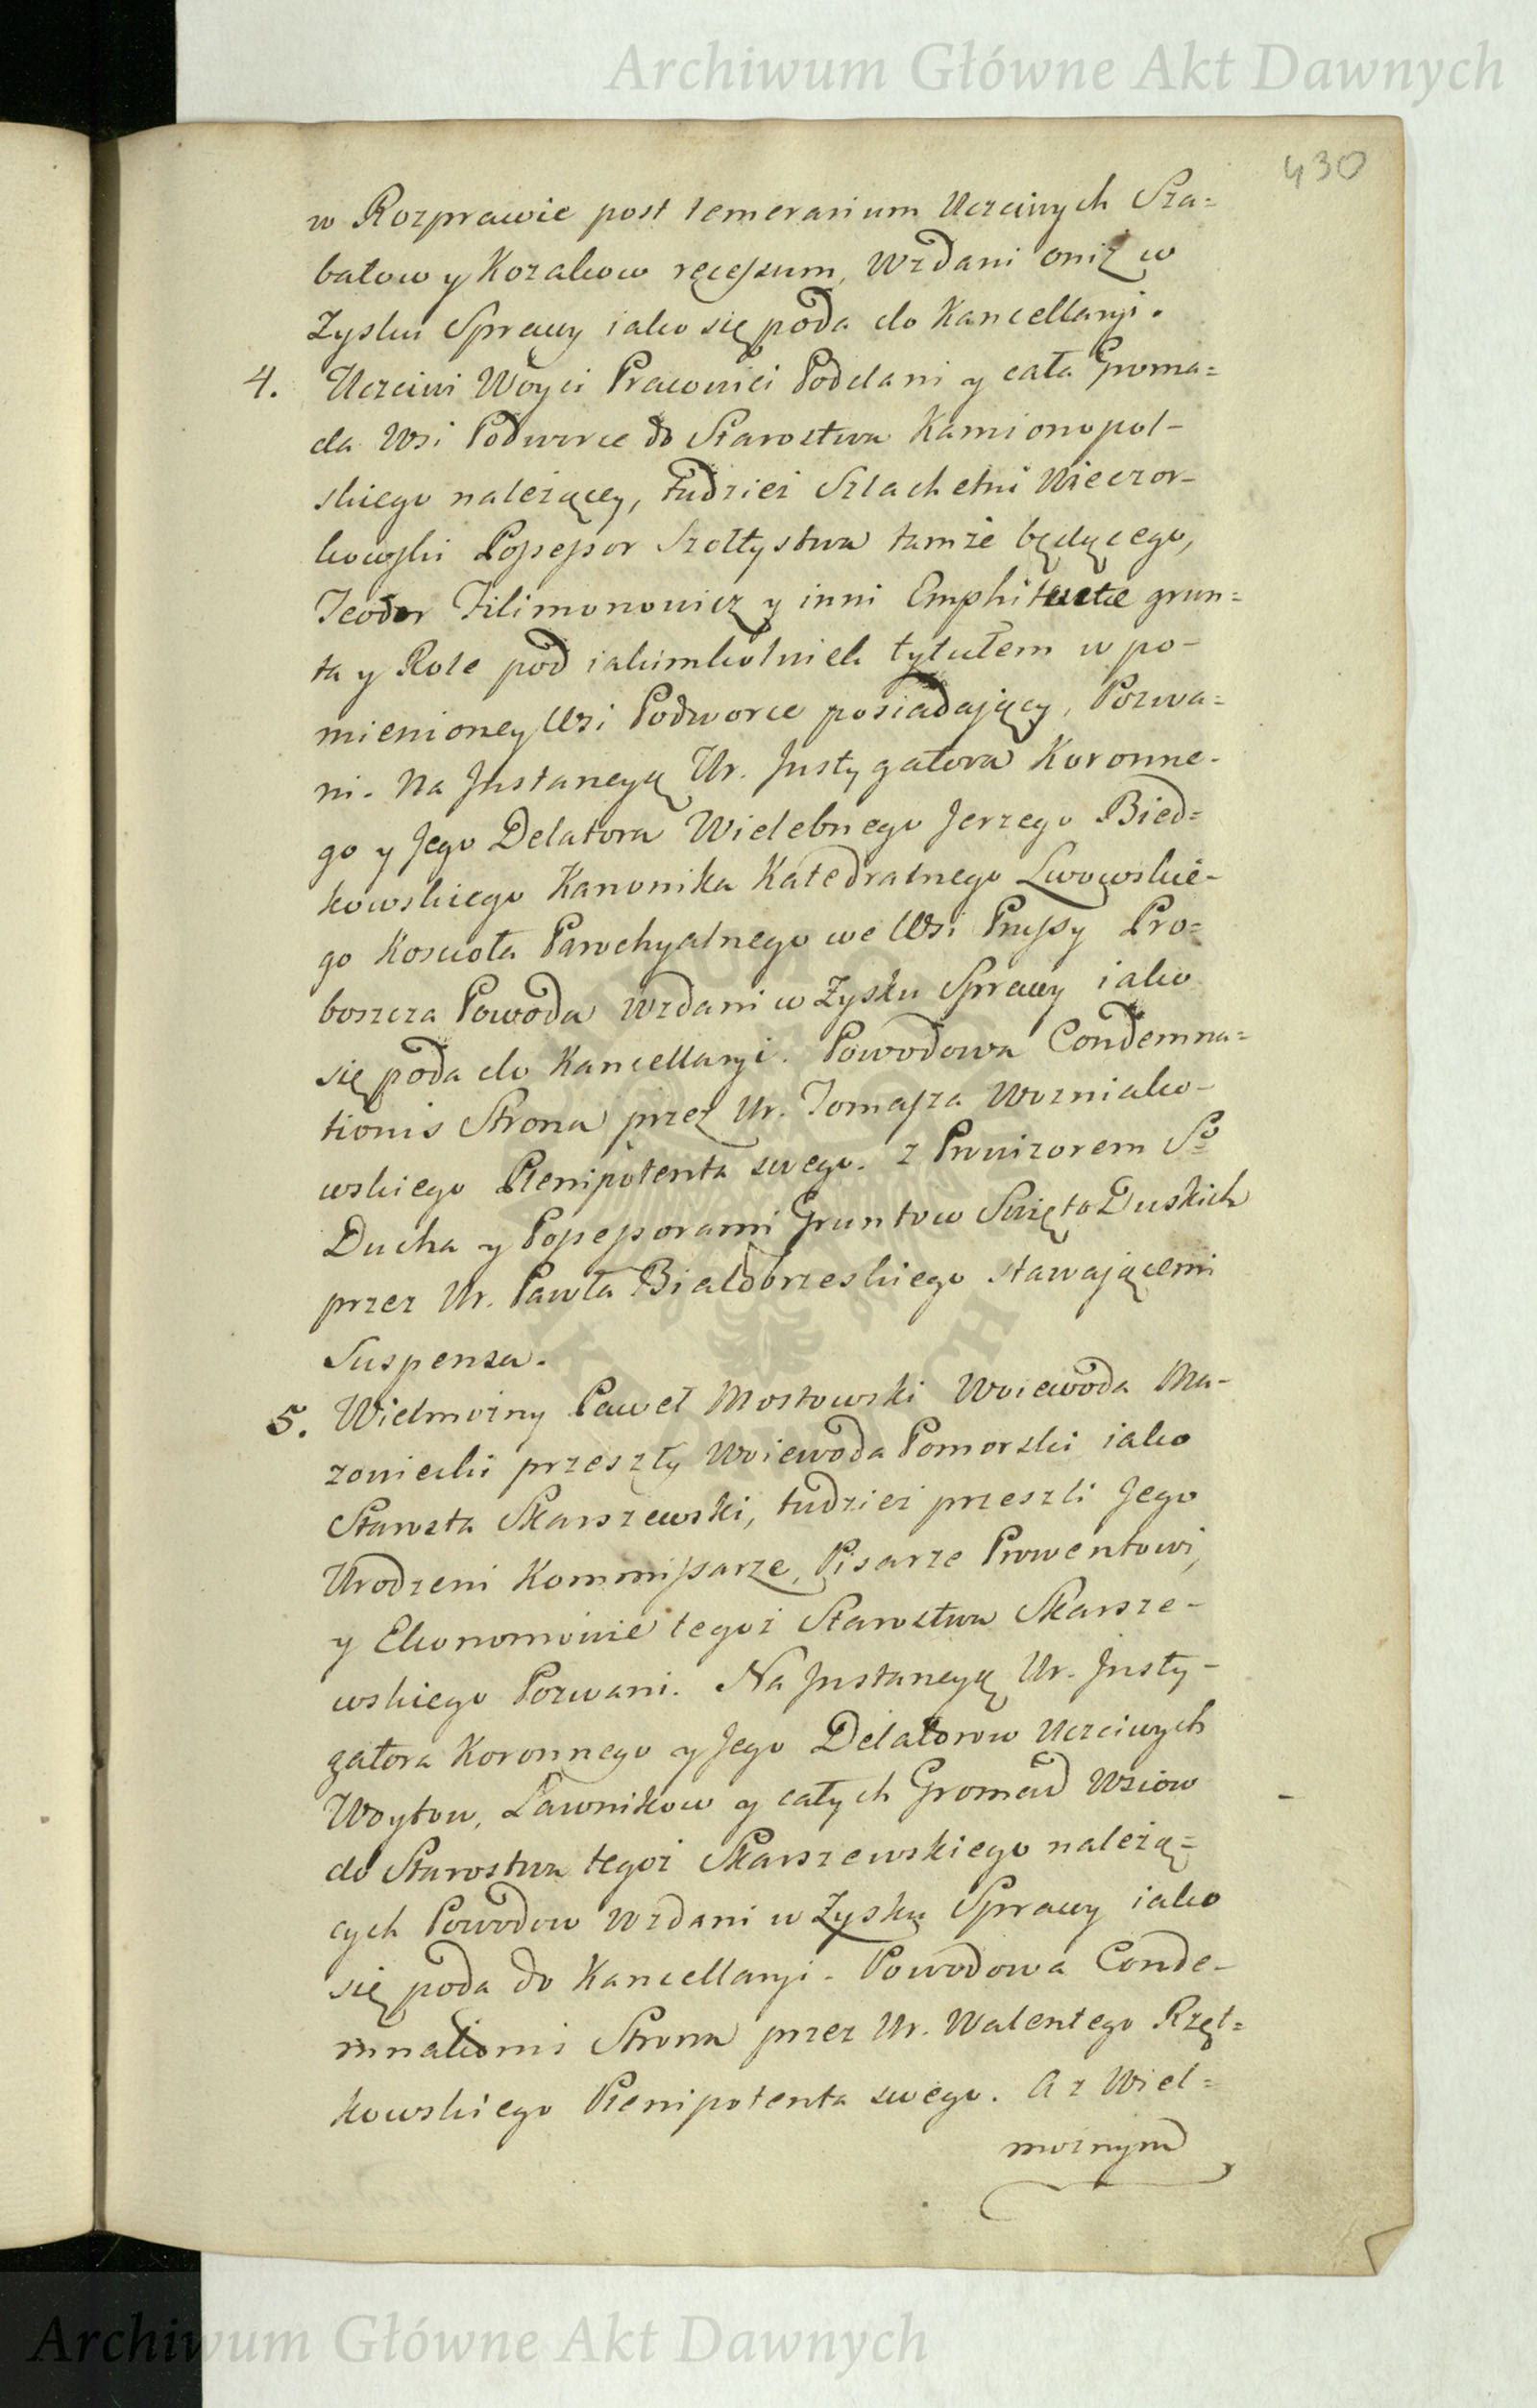 Archiwum Główne Akt Dawnych
430
w Rozprawie post temerarium Uczciwych Sza=
batow y Kozakow recessum, Wzdani oniż w
Zysku Sprawy iako się poda do Kancellaryi.
4. Uczciwi Woyci Prawnici Poddani y cała Groma=
da Wsi Podworce do Starostwa Kamionopol-
skiego należący, tudzież Szlachetni Wieczor-
kowski Possessor Szołtystwa tamże będącego,
Teodor Filimonowicz y inni Emphiteutæ grun=
ta y Role pod iakimkolwiek tytułem w po-
mienioney Wsi Podworce posiadający, Pozwa=
ni. Na Jnstancyą Ur. Jnstygatora Koronne-
go y Jego Delatora Wielebnego Jerzego Bied=
kowskiego Kanonika Katedralnego Lwowskie-
go Koscioła Parochyalnego we Wsi Prussy Pro=
boszcza Powoda Wzdani w Zysku Sprawy iako
się poda do Kancellaryi. Powodowa Condemna=
tionis Strona przez Ur. Tomasza Wozniako-
wskiego Plenipotenta swego. z Prowizorem So
Ducha y Possessorami Gruntow Swięto Duskich
przez Ur. Pawła Białobrzeskiego stawającemi
Suspensa.
5. Wielmożny Paweł Mostowski Woiewoda Ma-
zowiecki przeszły Woiewoda Pomorski iako
Starosta Skarszewski, tudzież przeszli Jego
Urodzeni Kommissarze, Pisarze Prowentowi,
y Ekonomowie tegoż Starostwa Skarsze-
wskiego Pozwani. Na Jnstancyą Ur. Jnsty-
gatora Koronnego y Jego Delatorow Uczciwych
Woytow, Ławnikow y całych Gromad Wsiow
do Starostwa tegoż Skarszewskiego należą=
cych Powodow Wzdani w Zysku Sprawy iako
się poda do Kancellaryi. Powodowa Conde-
mnationis Strona przez Ur. Walentego Rzęt=
kowskiego Plenipotenta swego. A z Wiel=
możnym
Archiwum Główne Akt Dawnych